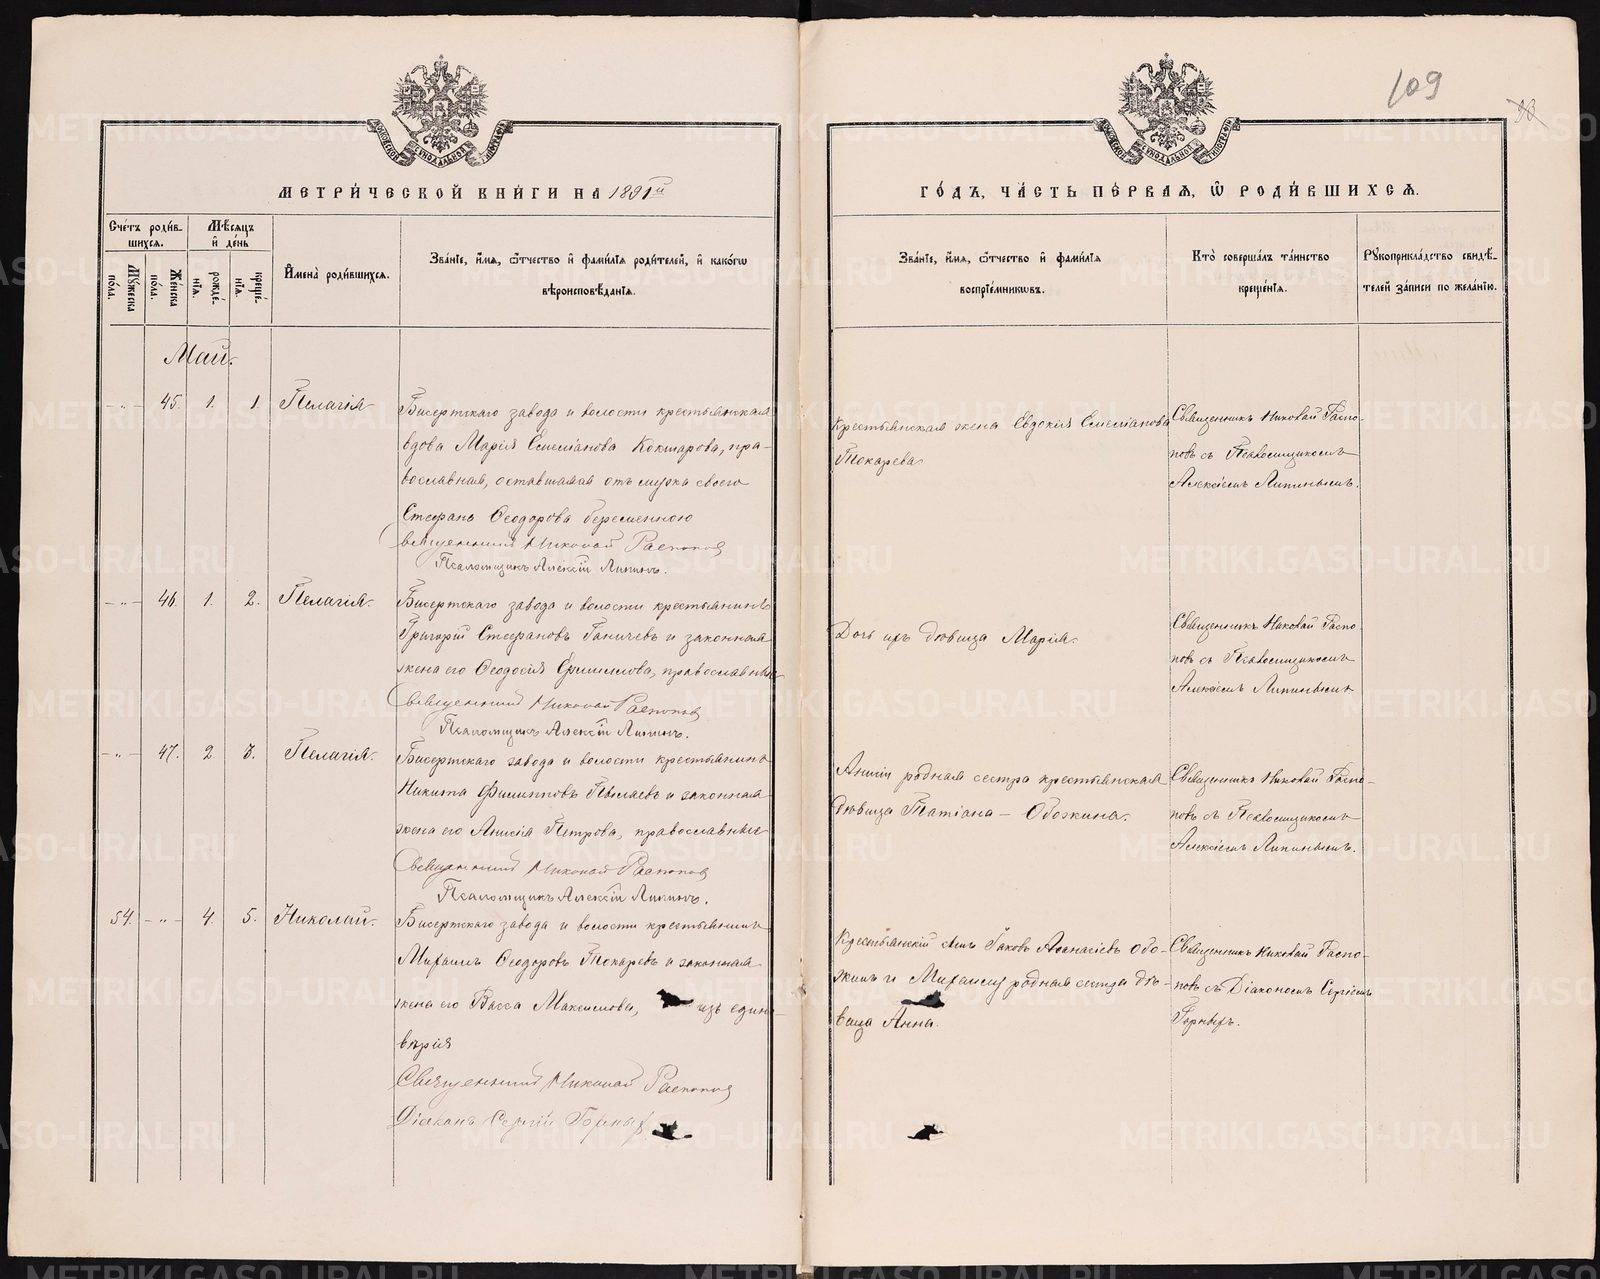 109
МЕТРИ́ЧЕСКОЙ КНИ́ГИ НА 1891й
ГО́ДЪ, ЧА́СТЬ ПЕ́РВАѦ, Ѡ҆ РОДИ́ВШИХСѦ.
Сче́тъ роди́в-
шихсѧ.
Мѣ́сѧцъ
и҆ де́нь
Мꙋ́жеска
по́ла.
Же́нска
по́ла.
рожде́-
нїѧ.
креще́-
нїѧ.
И҆мена̀ роди́вшихсѧ.
Зва́нїе, и҆́мѧ, ѻ҆́тчество и҆ фами́лїѧ роди́телей, и҆ како́гѡ
вѣроисповѣ́данїѧ.
Зва́нїе, и҆́мѧ, ѻ҆́тчество и҆ фами́лїѧ
воспрїе́мникѡвъ.
Кто̀ соверша́лъ та́инство
креще́нїѧ.
Рꙋкоприкла́дство свидѣ́-
телей за́писи по жела́нїю.
Май.
-"- 45. 1. 1. Пелагія
Бисертскаго завода и волости крестьянская
вдова Марія Емеліанова Кокшарова, пра-
вославная, оставшаяся отъ мужа своего
Стефана Ѳеодорова беременною
Священникъ Николай Распоповъ
Псаломщикъ Алексій Липинъ.
Крестьянская жена Евдокія Емеліанова
Токарева
Священникъ Николай Распо-
повъ съ Псаломщикомъ
Алексіемъ Липинымъ.
-"- 46. 1. 2. Пелагія.
Бисертскаго завода и волости крестьянинъ
Григорій Стефановъ Ганичевъ и законная
жена его Ѳеодосія Филиппова, православные
Священникъ Николай Распоповъ
Псаломщикъ Алексій Липинъ.
Дочь ихъ дѣвица Марія.
Священникъ Николай Распо-
повъ съ Псаломщикомъ
Алексіемъ Липинымъ
-"- 47. 2 3. Пелагія.
Бисертскаго завода и волости крестьянинъ
Никита Филипповъ Пылаевъ и законная
жена его Анисія Петрова, православные
Священникъ Николай Распоповъ
Псаломщикъ Алексій Липинъ.
Анисіи родная сестра крестьянская
дѣвица Татіана – Обожина.
Священникъ Николай Распо-
повъ съ Псаломщикомъ
Алексіемъ Липинымъ.
54. -"- 4. 5. Николай.
Бисертскаго завода и волости крестьянинъ
Михаилъ Ѳеодоровъ Токаревъ и законная
жена его Васса Максимова, изъ едино-
вѣрія
Священникъ Николай Распоповъ
Діаконъ Сергій Горныхъ
Крестьянскій сынъ Іаковъ Аѳанасіевъ Обо-
жинъ и Михаилу родная сестра дѣ-
вица Анна.
Священникъ Николай Распо-
повъ съ Діакономъ Сергіемъ
Горныхъ.
METRIKI.GASO-URAL.RU